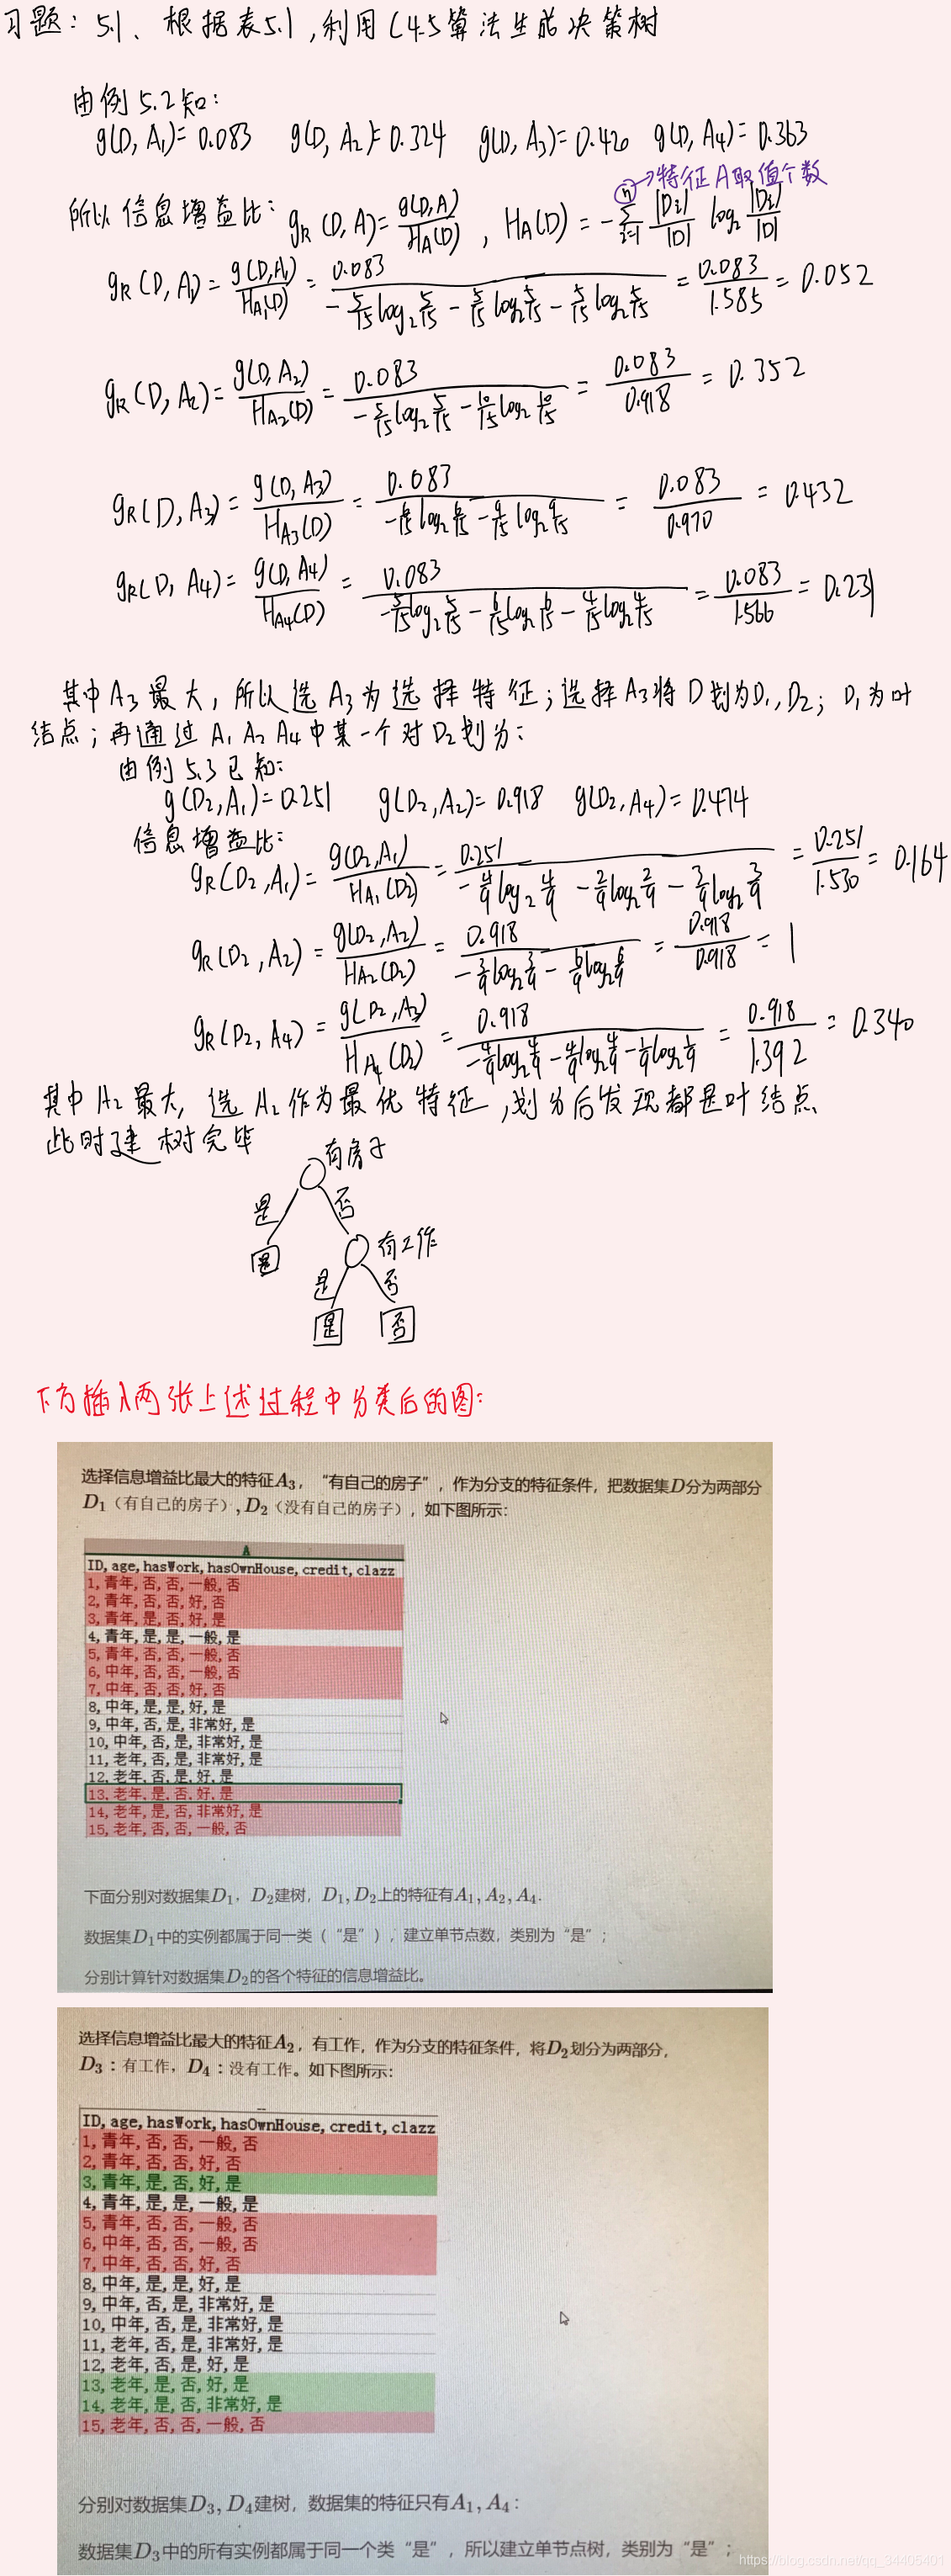 习题: 5.1、根据表5.1,利用C4.5算法生成决策树
由例5.2知:
g(D,A₁)=0.083 g(D,A₂)=0.324 g(D,A₃)=0.420 g(D,A₄)=0.363
n→特征A取值个数
所以信息增益比: g_R(D,A)=g(D,A)/H_A(D) , H_A(D)=-∑_{i=1}^{n} |Dᵢ|/|D| log₂ |Dᵢ|/|D|
g_R(D,A₁)=g(D,A₁)/H_A₁(D)=0.083/(-5/15 log₂ 5/15 - 5/15 log₂ 5/15 - 5/15 log₂ 5/15)=0.083/1.585=0.052
g_R(D,A₂)=g(D,A₂)/H_A₂(D)=0.083/(-5/15 log₂ 5/15 - 10/15 log₂ 10/15)=0.083/0.918=0.352
g_R(D,A₃)=g(D,A₃)/H_A₃(D)=0.083/(-6/15 log₂ 6/15 - 9/15 log₂ 9/15)=0.083/0.970=0.432
g_R(D,A₄)=g(D,A₄)/H_A₄(D)=0.083/(-5/15 log₂ 5/15 - 6/15 log₂ 6/15 - 4/15 log₂ 4/15)=0.083/1.566=0.231
其中A₃最大,所以选A₃为选择特征;选择A₃将D划为D₁,D₂; D₁为叶
结点;再通过A₁ A₂ A₄中某一个对D₂划分:
由例5.3已知:
g(D₂,A₁)=0.251 g(D₂,A₂)=0.918 g(D₂,A₄)=0.474
信息增益比:
g_R(D₂,A₁)=g(D₂,A₁)/H_A₁(D₂)=0.251/(-4/9 log₂ 4/9 - 2/9 log₂ 2/9 - 3/9 log₂ 3/9)=0.251/1.530=0.164
g_R(D₂,A₂)=g(D₂,A₂)/H_A₂(D₂)=0.918/(-3/9 log₂ 3/9 - 6/9 log₂ 6/9)=0.918/0.918=1
g_R(D₂,A₄)=g(D₂,A₃)/H_A₄(D₂)=0.918/(-4/9 log₂ 4/9 - 4/9 log₂ 4/9 - 1/9 log₂ 1/9)=0.918/1.392=0.340
其中A₂最大,选A₂作为最优特征,划分后发现都是叶结点
此时建树完毕
有房子
是 否
是 有工作
是 否
是 否
下方插入两张上述过程中分类后的图:
选择信息增益比最大的特征A₃，“有自己的房子”，作为分支的特征条件，把数据集D分为两部分
D₁（有自己的房子）, D₂（没有自己的房子），如下图所示：
A
ID,age,hasWork,hasOwnHouse,credit,clazz
1,青年,否,否,一般,否
2,青年,否,否,好,否
3,青年,是,否,好,是
4,青年,是,是,一般,是
5,青年,否,否,一般,否
6,中年,否,否,一般,否
7,中年,否,否,好,否
8,中年,是,是,好,是
9,中年,否,是,非常好,是
10,中年,否,是,非常好,是
11,老年,否,是,非常好,是
12,老年,否,是,好,是
13,老年,是,否,好,是
14,老年,是,否,非常好,是
15,老年,否,否,一般,否
下面分别对数据集D₁，D₂建树，D₁, D₂上的特征有A₁, A₂, A₄.
数据集D₁中的实例都属于同一类（“是”），建立单节点数，类别为“是”；
分别计算针对数据集D₂的各个特征的信息增益比。
选择信息增益比最大的特征A₂，有工作，作为分支的特征条件，将D₂划分为两部分，
D₃：有工作，D₄：没有工作。如下图所示：
ID,age,hasWork,hasOwnHouse,credit,clazz
1,青年,否,否,一般,否
2,青年,否,否,好,否
3,青年,是,否,好,是
4,青年,是,是,一般,是
5,青年,否,否,一般,否
6,中年,否,否,一般,否
7,中年,否,否,好,否
8,中年,是,是,好,是
9,中年,否,是,非常好,是
10,中年,否,是,非常好,是
11,老年,否,是,非常好,是
12,老年,否,是,好,是
13,老年,是,否,好,是
14,老年,是,否,非常好,是
15,老年,否,否,一般,否
分别对数据集D₃, D₄建树，数据集的特征只有A₁, A₄：
数据集D₃中的所有实例都属于同一个类“是”，所以建立单节点树，类别为“是”；
https://blog.csdn.net/qq_34405401